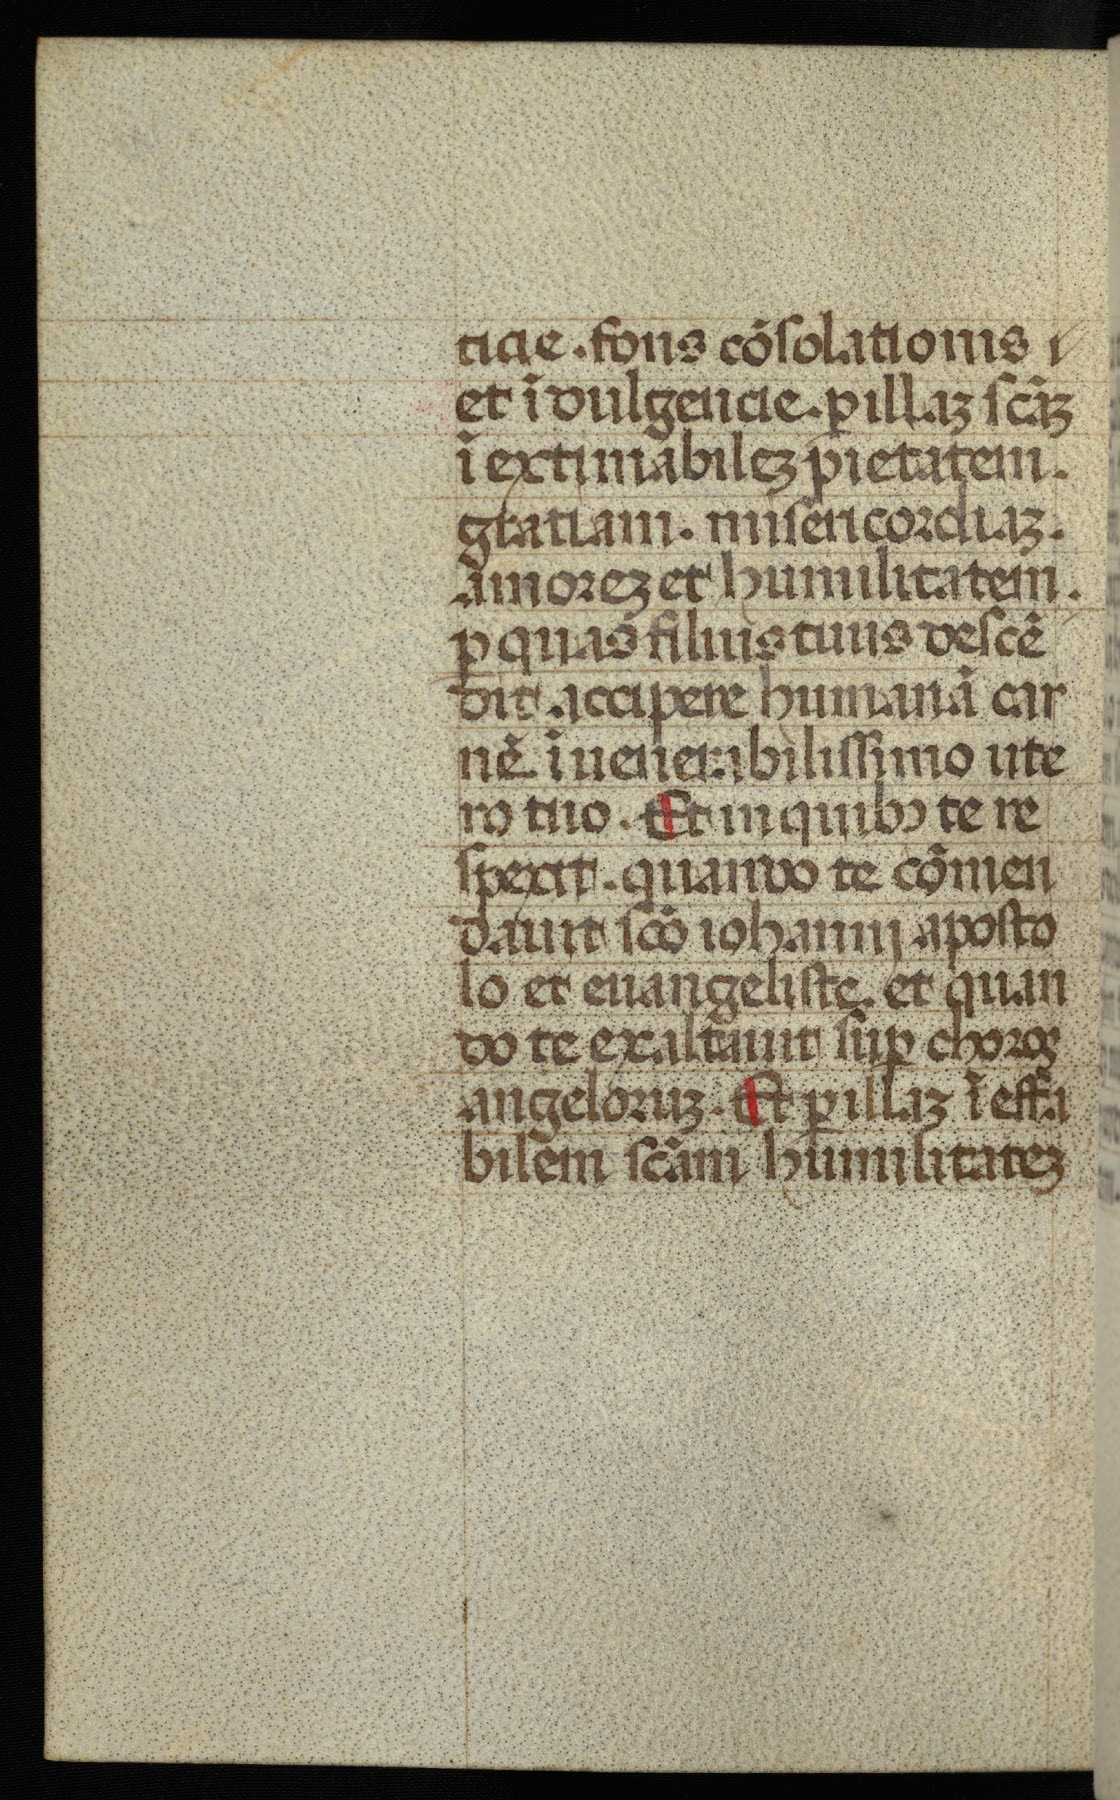 ticie. fons cõsolationis
et ĩdulgencie. p illaʒ sc̃aʒ
ĩextimabileʒ pietatem.
gratiam. misericordiaʒ.
amoreʒ et humilitatem.
p quas filius tuus descẽ
dit accipere humanã car
nẽ ĩ uenerabilissimo ute
ro tuo. Et in quibꝰ te re
spexit. quando te cõmen
dauit sc̃o iohanni aposto
lo et euangeliste. et quan
do te exaltauit sup choros
angeloruʒ. Et p illaʒ ĩeffa
bilem sc̃am humilitateʒ